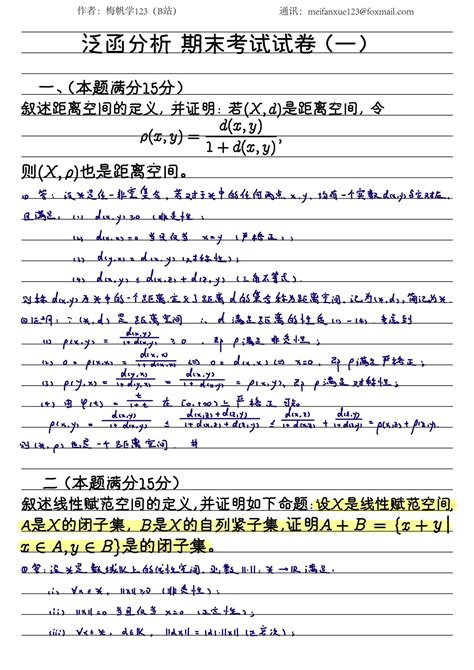 作者：梅帆学123（B站） 通讯：meifanxue123@foxmail.com
泛函分析 期末考试试卷（一）
一、（本题满分15分）
叙述距离空间的定义，并证明：若(X,d)是距离空间，令
ρ(x,y) = d(x,y) / (1 + d(x,y)),
则(X,ρ)也是距离空间。
① 答：设X是任一非空集合，若对于X中的任何两点x,y，均有一个实数d(x,y)与它对应，
且满足：(1) d(x,y)≥0（非负性）；
(2) d(x,y)=0 当且仅当 x=y（严格正）；
(3) d(y,x)=d(x,y)（对称性）；
(4) d(x,y)≤d(x,z)+d(z,y)（三角不等式）.
则称d(x,y)为X中的一个距离，定义了距离d的集合称为距离空间，记为(X,d)，简记为X
② 证明：∵(X,d)是距离空间 ∴d满足距离的性质(1)-(4)
(1) ρ(x,y) = d(x,y)/(1+d(x,y)) ≥ 0，即ρ满足非负性；
ρ满足严格正；
(3) ρ(y,x) = d(y,x)/(1+d(y,x)) = d(x,y)/(1+d(x,y)) = ρ(x,y)，即ρ满足对称性；
(4) 由φ(t) = t/(1+t) 在[0,+∞)上严格正 可知
ρ(x,y) = d(x,y)/(1+d(x,y)) ≤ (d(x,z)+d(z,y))/(1+d(x,z)+d(z,y)) ≤ d(x,z)/(1+d(x,z)) + d(z,y)/(1+d(z,y)) = ρ(x,z)+ρ(z,y)
则(X,ρ)也是一个距离空间. #
二（本题满分15分）
叙述线性赋范空间的定义，并证明如下命题：设X是线性赋范空间，
A是X的闭子集，B是X的自列紧子集，证明A + B = {x + y |
x ∈ A, y ∈ B}是的闭子集。
① 答：设X是数域K上的线性空间，函数||·||：X→R 满足：
(i) ∀x∈X，||x||≥0（非负性）；
(ii) ||x||=0 当且仅当 x=0（正定性）；
(iii) ∀x∈X，α∈K，||αx||=|α|·||x||（正齐次）；